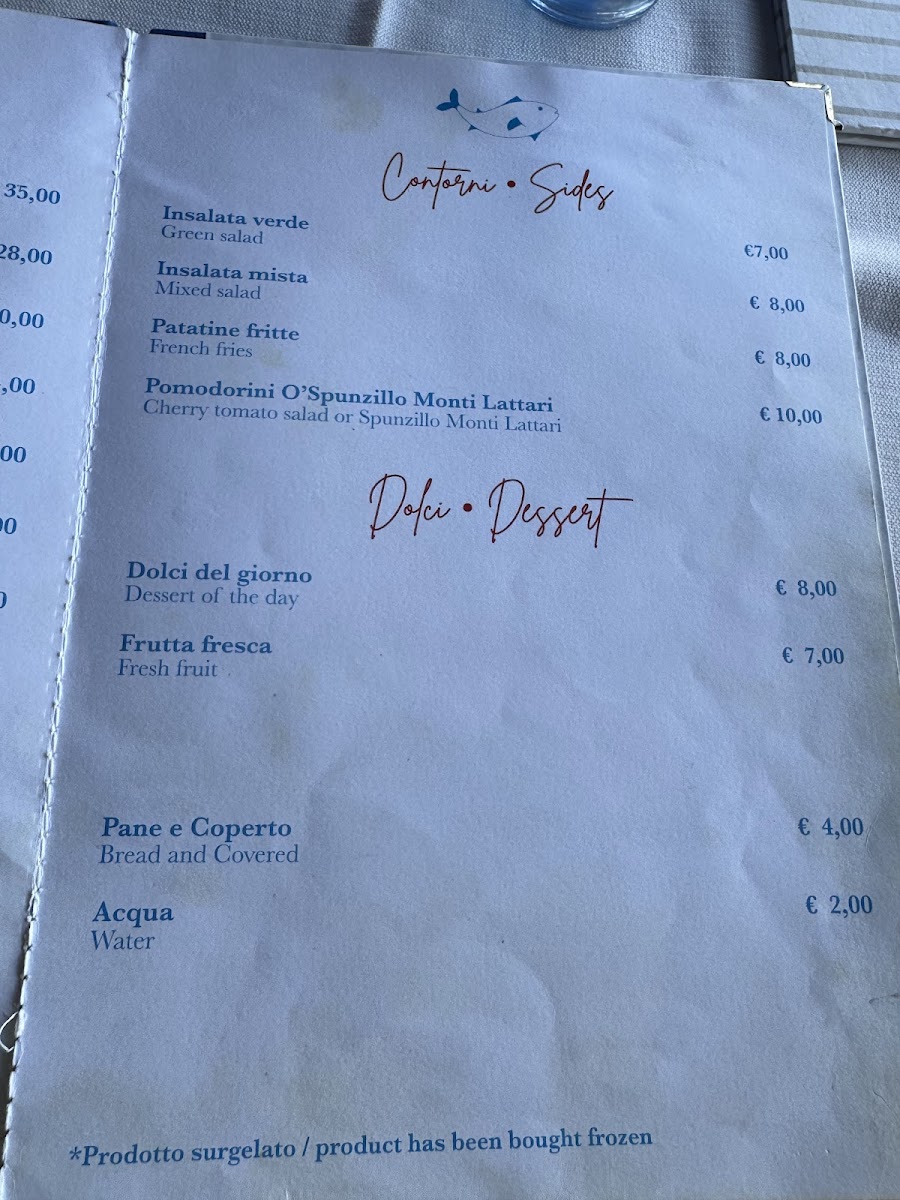 35,00
28,00
0,00
,00
00
00
0
Contorni • Sides
Insalata verde
Green salad
€7,00
Insalata mista
Mixed salad
€ 8,00
Patatine fritte
French fries
€ 8,00
Pomodorini O'Spunzillo Monti Lattari
Cherry tomato salad or Spunzillo Monti Lattari
€ 10,00
Dolci • Dessert
Dolci del giorno
Dessert of the day
€ 8,00
Frutta fresca
Fresh fruit
€ 7,00
Pane e Coperto
Bread and Covered
€ 4,00
Acqua
Water
€ 2,00
*Prodotto surgelato / product has been bought frozen